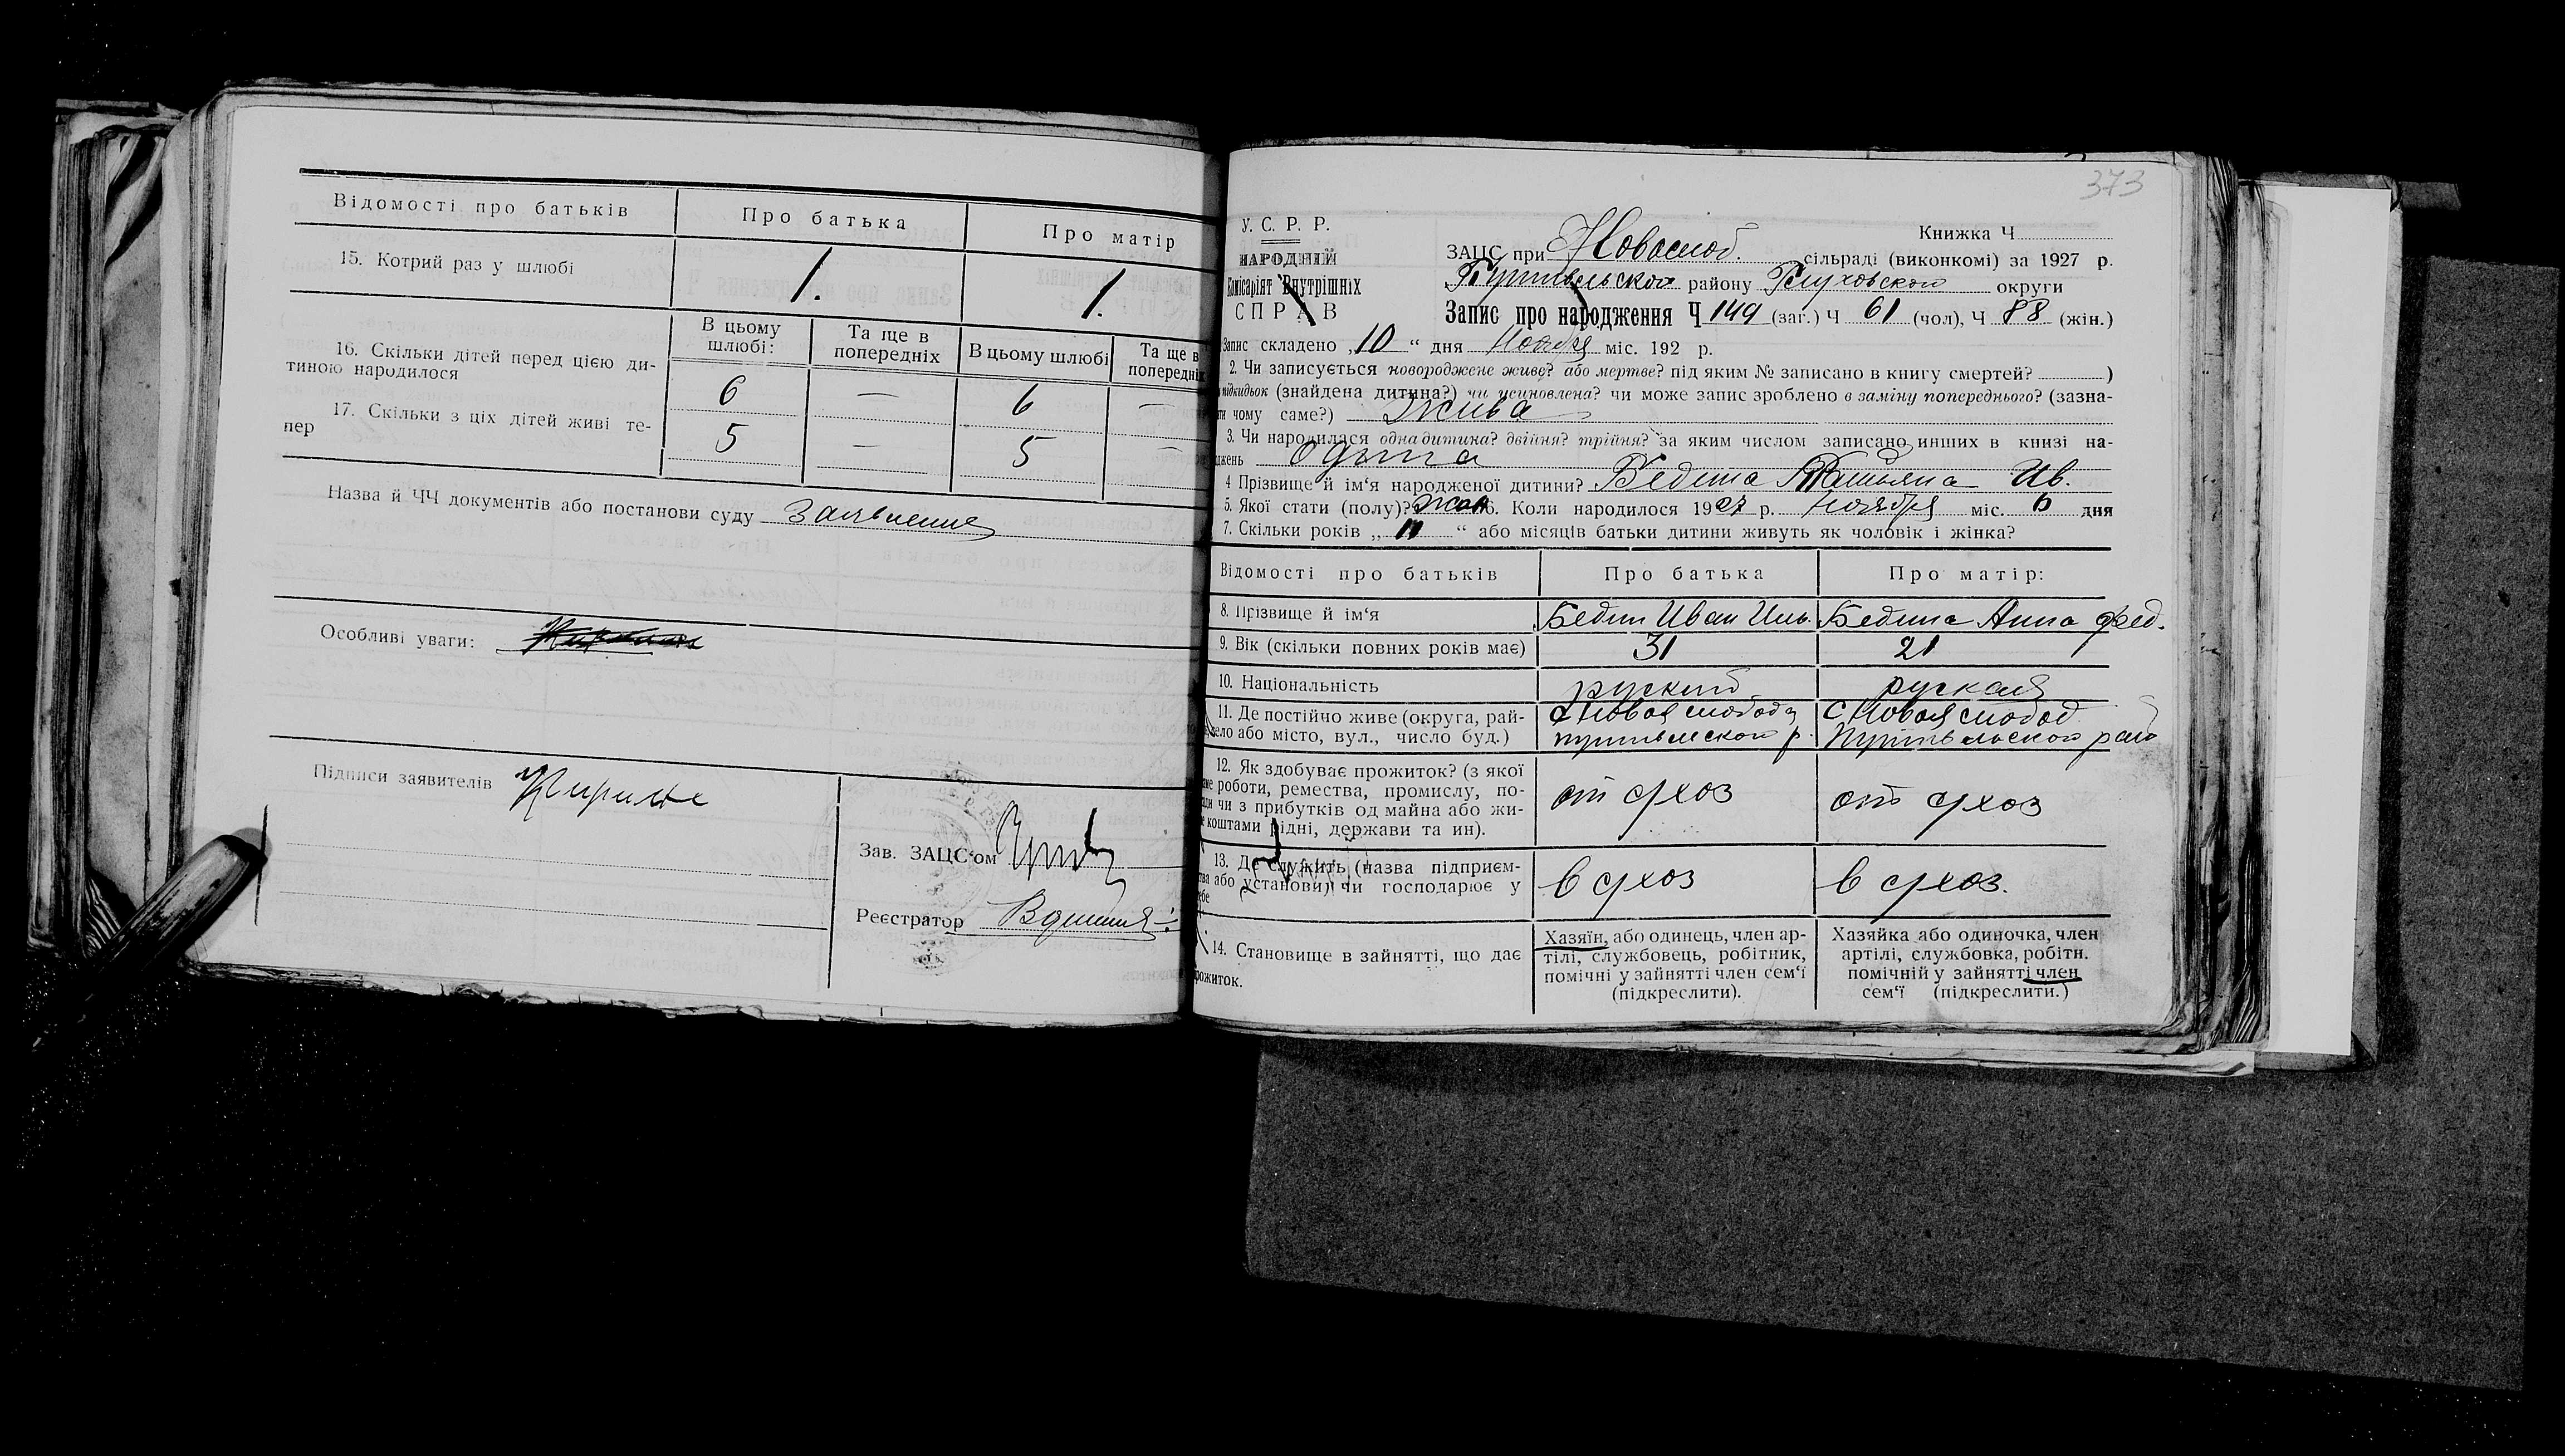 Відомості про батьків Про батька Про матір
15. Котрий раз у шлюбі 1. 1.
В цьому шлюбі: Та ще в попередніх В цьому шлюбі Та ще в попередніх
16. Скільки дітей перед цією ди-
тиною народилося 6 — 6 —
17. Скільки з ціх дітей живі те-
пер 5 — 5 —
Назва й ЧЧ документів або постанови суду Заявление
Особливі уваги:
Підписи заявителів
Зав. ЗАЦС‘ом
Реєстратор
373
У. С. Р. Р.
НАРОДНІЙ
Комісаріят Внутрішніх
СПРАВ
Книжка Ч
ЗАЦС при Новослоб. сільраді (виконкомі) за 1927 р.
Путивльского району Глуховского округи
Запис про народження Ч 149 (заг.) Ч 61 (чол), Ч 88 (жін.)
Запис складено „10“ дня Ноября міс. 192 р.
2. Чи записується новороджене живе? або мертве? під яким № записано в книгу смертей? )
підкидьок (знайдена дитина?) чи усиновлена? чи може запис зроблено в заміну попереднього? (зазна-
ти чому саме?) Жива
3. Чи народилася одна дитина? двійня? трійня? за яким числом записано инших в книзі на-
джень Одна
4 Прізвище й ім‘я народженої дитини? Бедина Татьяна Ив.
5. Якої стати (полу)? жен 6. Коли народилося 1927 р. ноября міс. 6 дня
7. Скільки років „11“ або місяців батьки дитини живуть як чоловік і жінка?
Відомості про батьків Про батька Про матір:
8. Прізвище й ім‘я Бедин Иван Иль. Бедина Анна фед.
9. Вік (скільки повних років має) 31 21
10. Національність руский руская
11. Де постійно живе (округа, рай- с Новая слобода с Новая слобод
село або місто, вул., число буд.) путивлского р. Путивльского рай
12. Як здобуває прожиток? (з якої
роботи, ремества, промислу, по-
чи з прибутків од майна або жи-
коштами рідні, держави та ин). от с/хоз от с/хоз
13. Де служить (назва підприєм-
тва або установи) чи господарює у
себе в с/хоз в с/хоз.
14. Становище в зайнятті, що дає
прожиток.
Хазяїн, або одинець, член ар-
тілі, службовець, робітник,
помічні у зайнятті член сем‘ї
(підкреслити).
Хазяйка або одиночка, член
артілі, службовка, робітн.
помічній у зайнятті член
сем‘ї (підкреслити.)